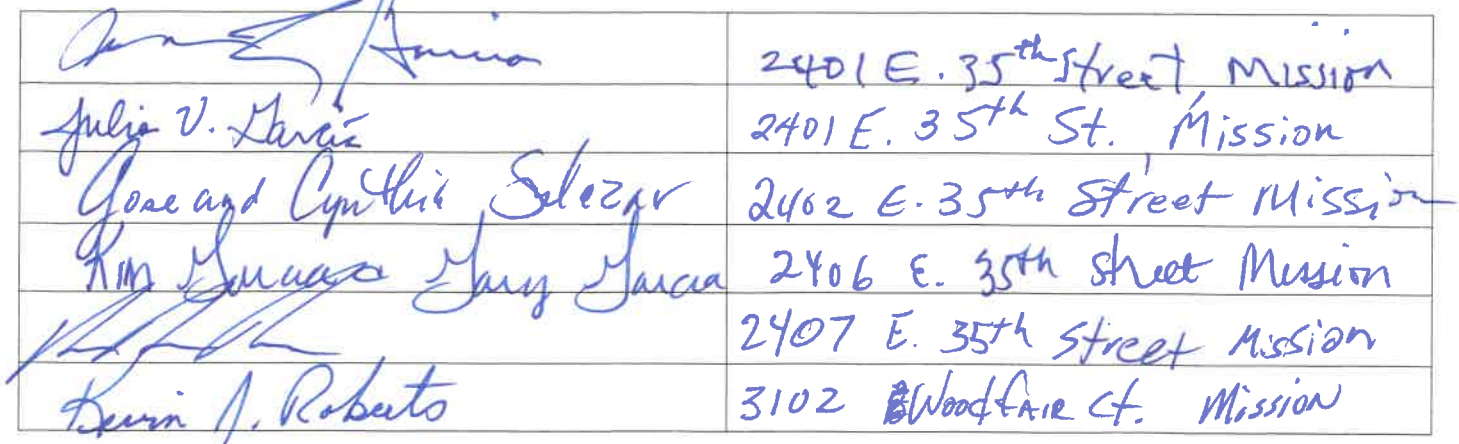 Garcia 2401 E. 35th Street Mission
Julia V. Garcia 2401 E. 35th St. Mission
Jose and Cynthia Salazar 2402 E. 35th Street Mission
Kim Garcia Gary Garcia 2406 E. 35th Street Mission
2407 E. 35th Street Mission
Kevin J. Roberts 3102 Woodfair Ct. Mission